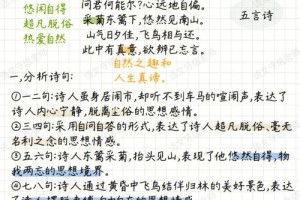 问君何能尔？心远地自偏。
悠闲自得
超凡脱俗
热爱自然
采菊东篱下，悠然见南山。
山气日夕佳，飞鸟相与还。
此中有真意，欲辩已忘言。
五言诗
自然之趣和
人生真谛。
一，分析诗句：
①一二句：诗人虽身居闹市，却听不到车马的喧闹声，表达了
诗人内心宁静，脱离尘俗的思想感情。
②三四句：采用自问自答的形式，表达了诗人超凡脱俗、毫无
名利之念的思想感情。
③五六句：诗人东篱采菊，抬头见山，表现了他悠然自得，物
我两忘的思想境界。
④七八句：诗人通过黄昏中飞鸟结伴归林的美好景色，表达